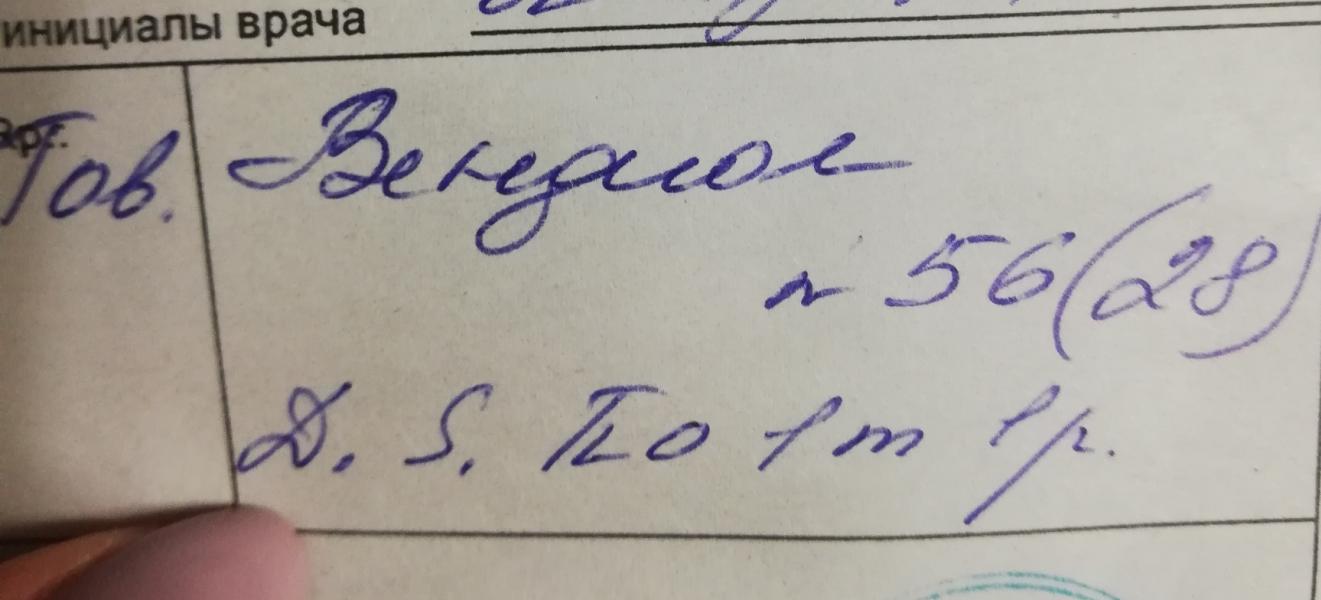 инициалы врача
Тов. Вендиол
n 56 (28)
D. S. По 1 т 1 р.